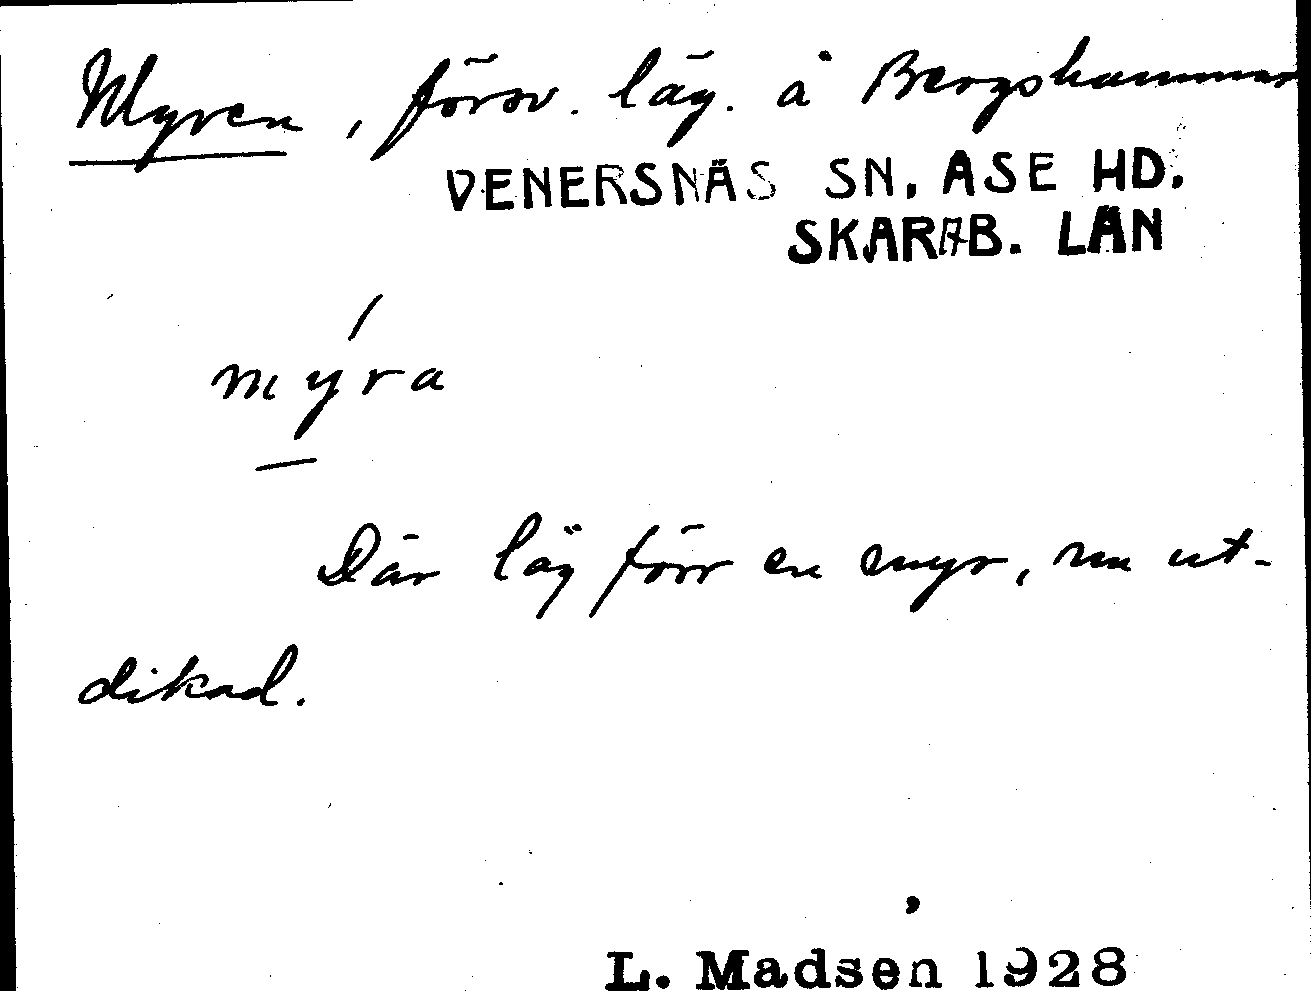 Myren, försv. läg. å Bergshammar
VENERSNÄS SN. ASE HD.
SKARAB. LÄN
mýra
Där låg förr en myr, nu ut-
dikad.
L. Madsen 1928